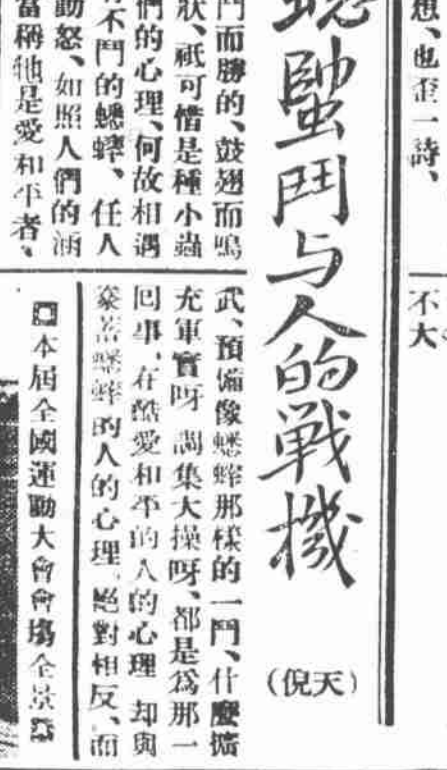 想、也歪一詩、
不大
鬥与人的戰機
(倪天)
鬥而勝的、鼓翅而鳴
狀、祇可惜是種小蟲
們的心理、何故相遇
不鬥的蟋蟀、任人
動怒、如照人們的涵
當稱牠是愛和平者、
武、預備像蟋蟀那樣的一鬥、什麼擴
充軍實呀 調集大操呀、都是爲那一
回事、在酷愛和平的人的心理 却與
豢蓄蟋蟀的人的心理、絕對相反、而
本屆全國運動大會會場全景